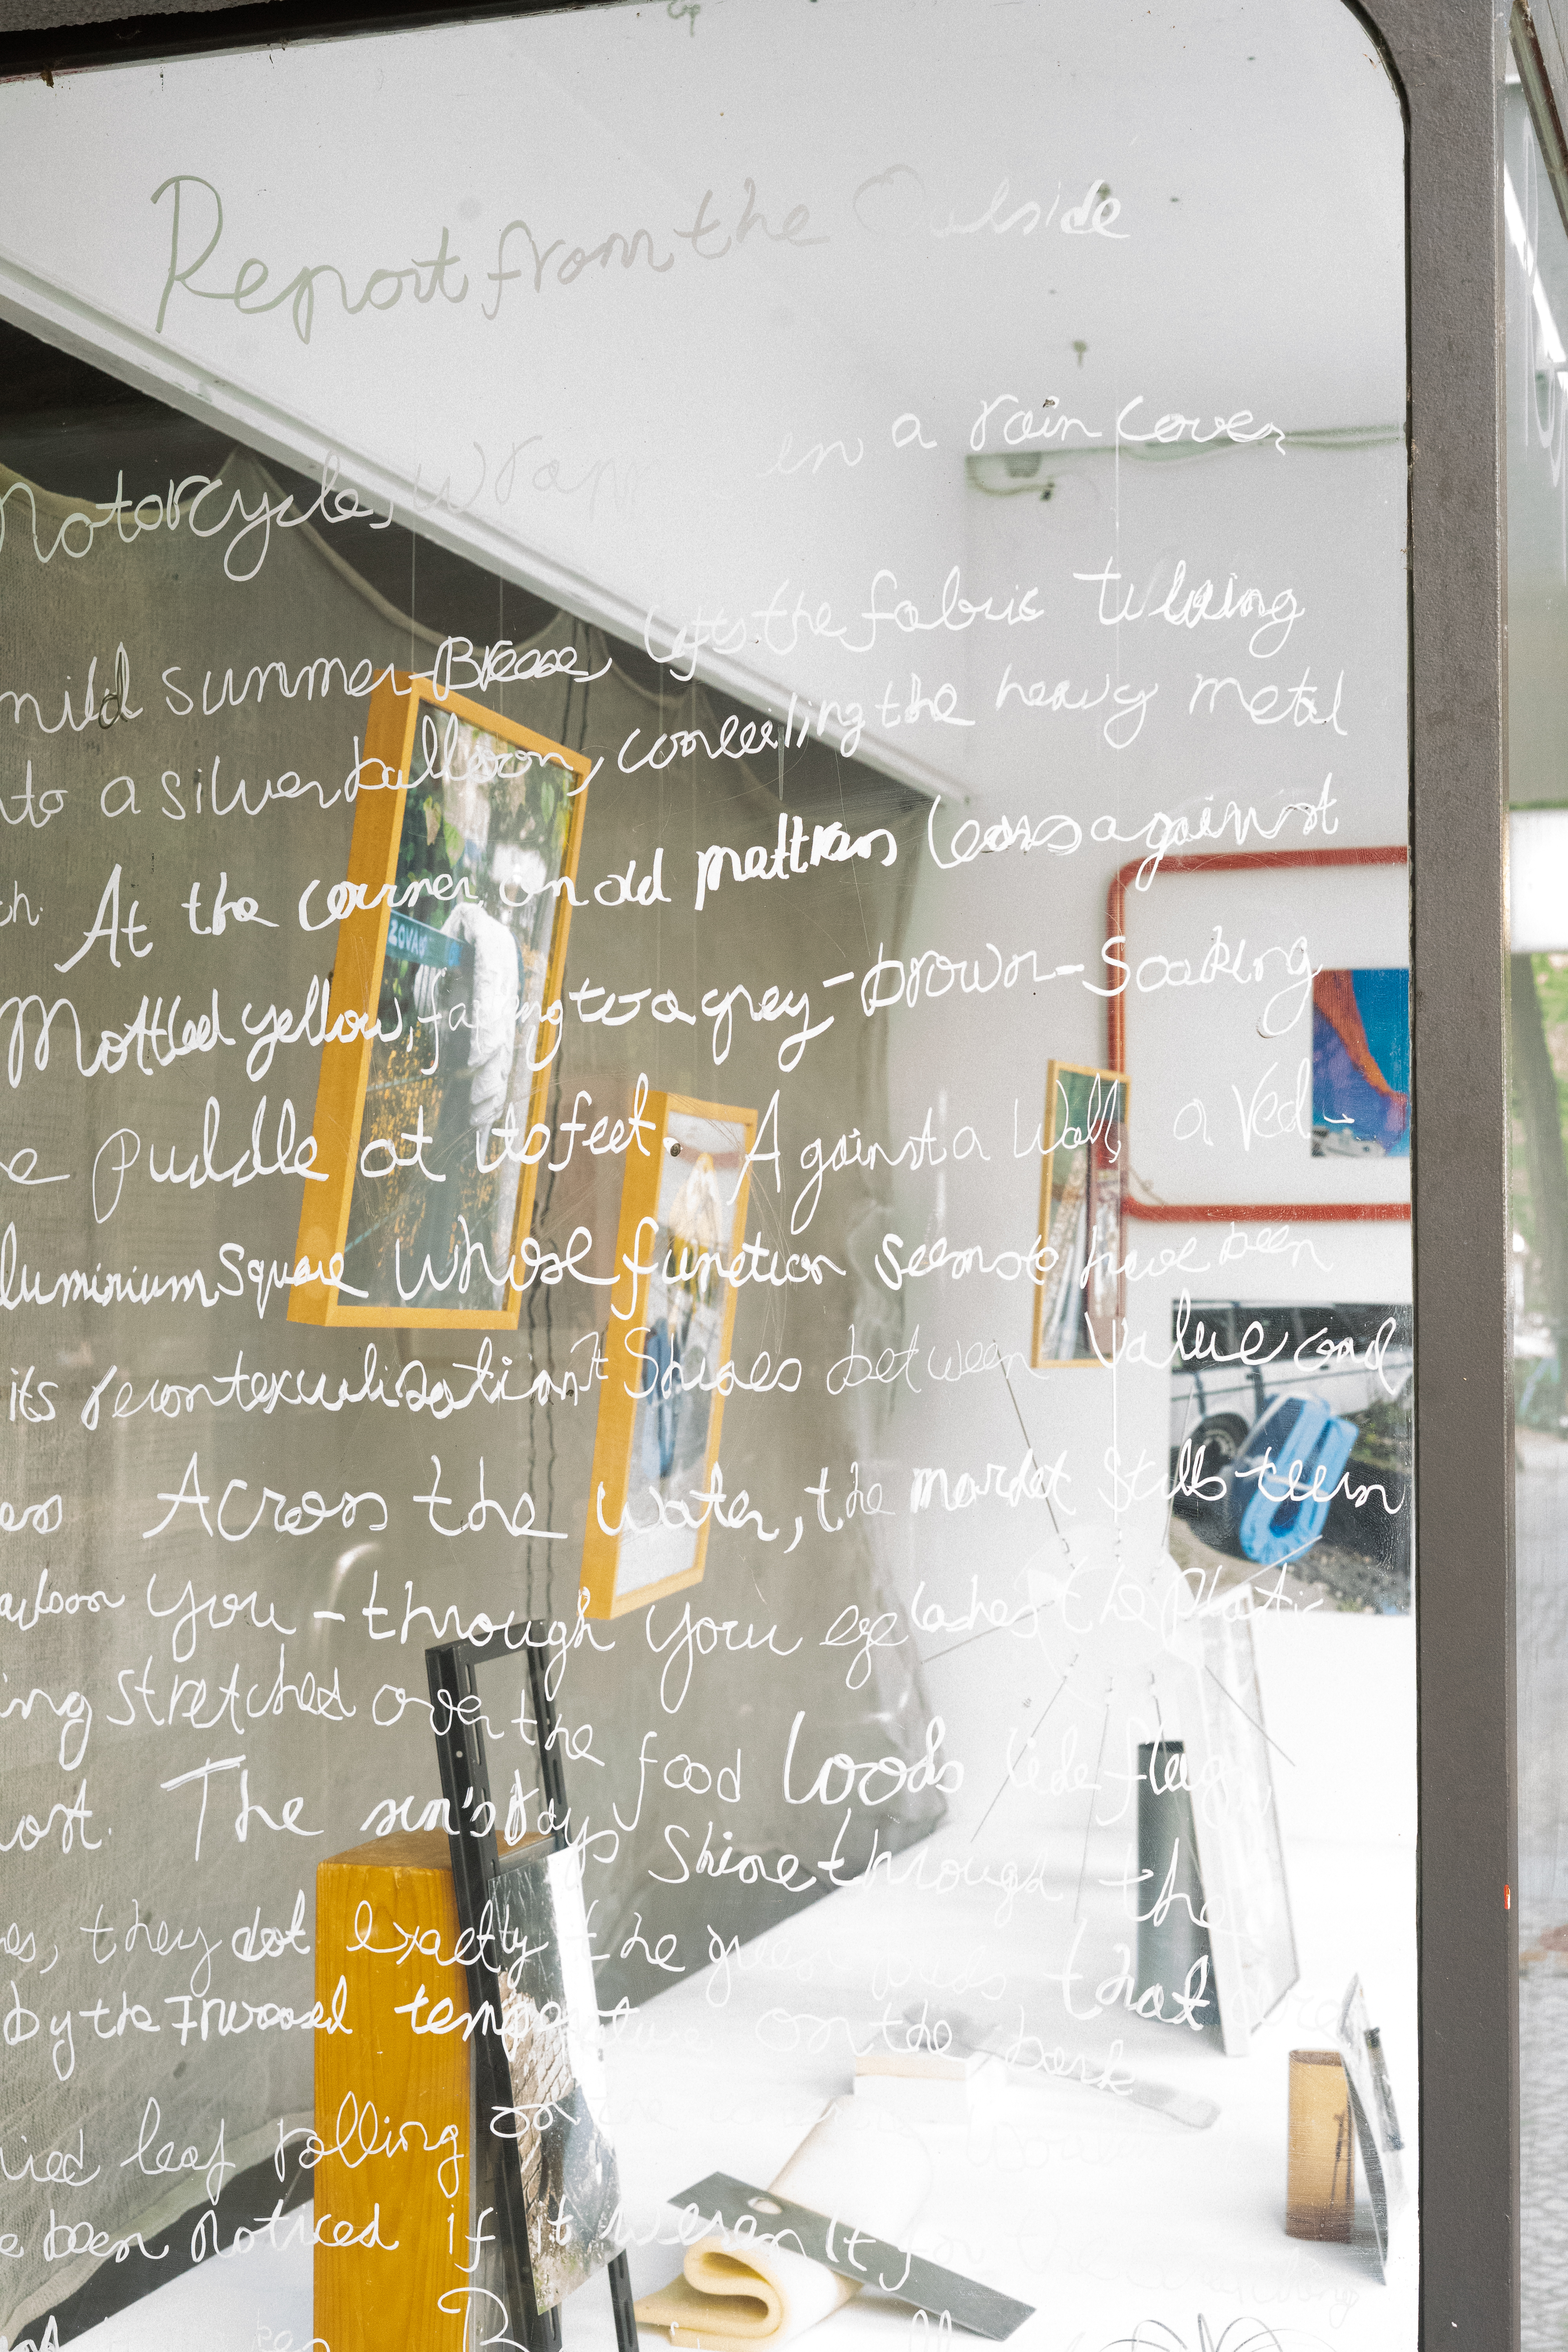 Report from the Outside
Motorcycle, wrapp in a rain cover
mild summer Breeze lifts the fabric turning
nto a silver balloon, conceiling the heavy metal
ch. At the corner an old mattress leans against
Mottled yellow, fading to a grey-brown-Soaking
e puddle at its feet. Against a wall, a Red-
luminium Square Whose function seems to have been
its recontextualisation. It Shines between Value and
ess Across the water, the market still teem
You - through your eyelashes the plastic
ing stretched over the food looks like flags,
ost. The sun's Rays Shine through the
es, they dot exactly the green that are
by the Increased temperature on the bark
ried leaf rolling on the
e been Noticed if it weren't for the
ZOVA